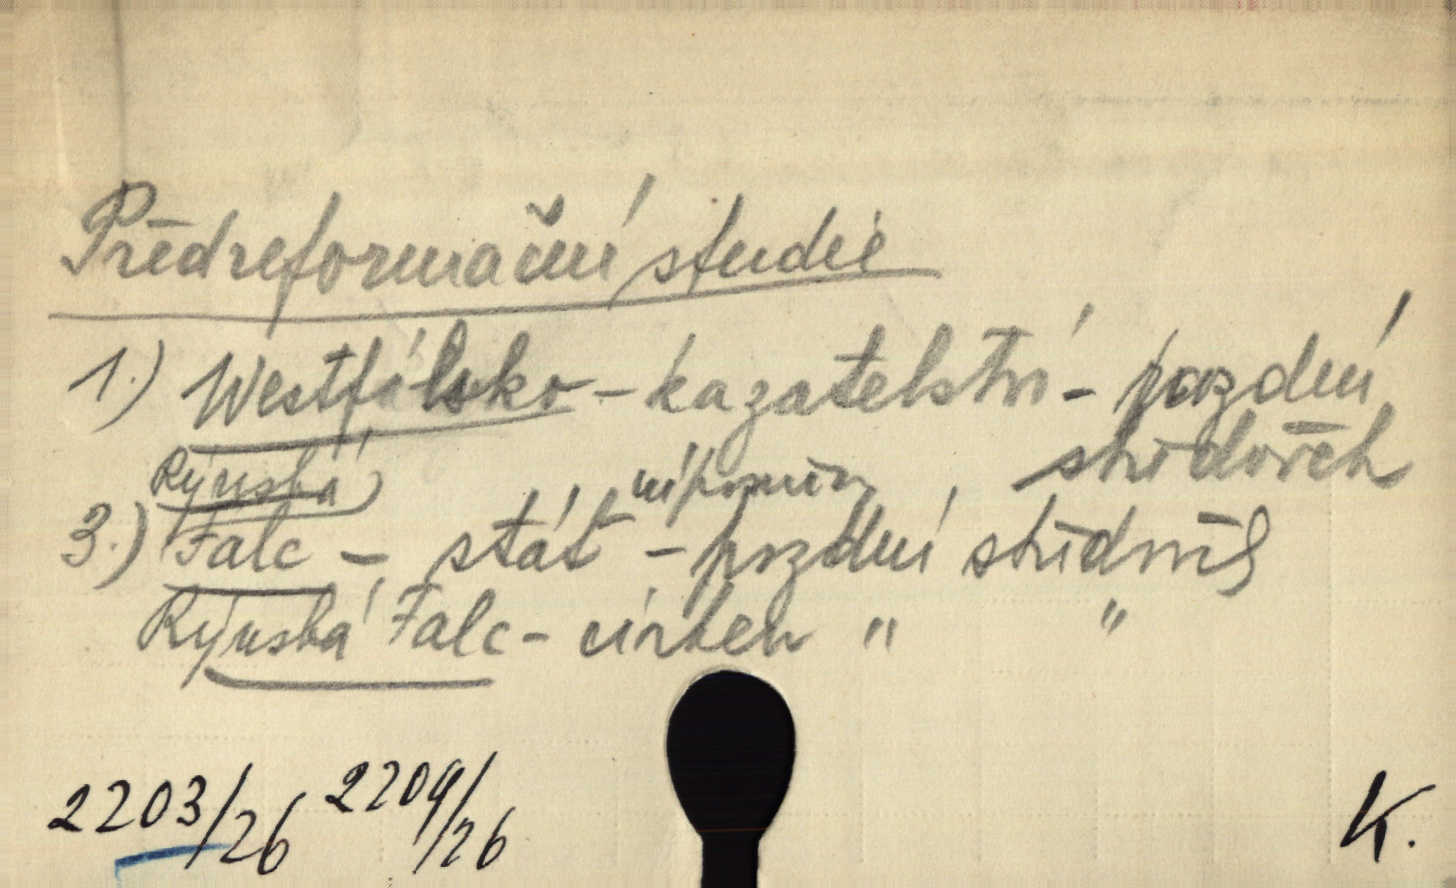 Předreformační studie
1.) Westfálsko - kazatelství - pozdní
středověk
Rýnská
3.) Falc - stát - pozdní středověk
Rýnská Falc - církev " "
2203/26 2209/26
K.